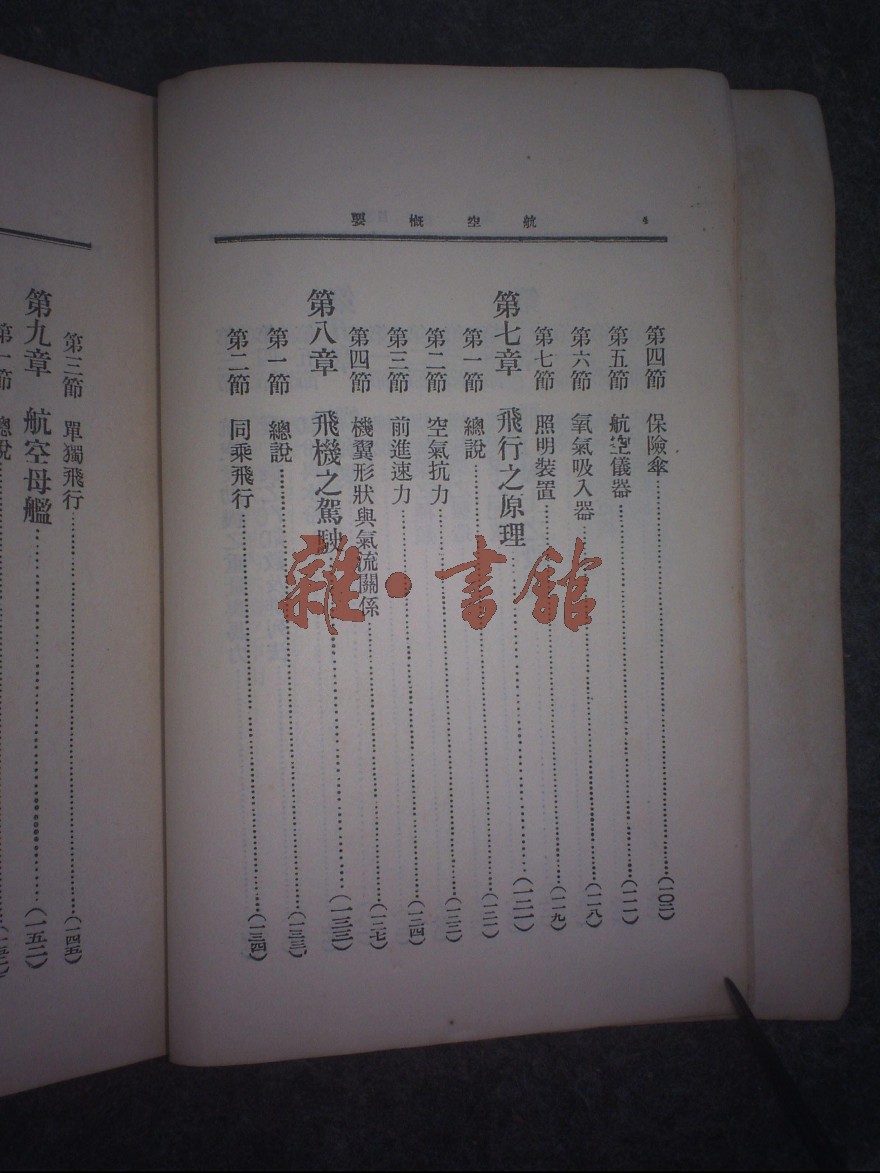 4 航空概要
第四節 保險傘……(一〇二)
第五節 航空儀器……(一一一)
第六節 氧氣吸入器……(一一八)
第七節 照明裝置……(一一九)
第七章 飛行之原理……(一二一)
第一節 總說……(一二一)
第二節 空氣抗力……(一二二)
第三節 前進速力……(一二四)
第四節 機翼形狀與氣流關係……(一二七)
第八章 飛機之駕駛……(一三三)
第一節 總說……(一三三)
第二節 同乘飛行……(一三四)
第三節 單獨飛行……(一四五)
第九章 航空母艦……(一五二)
第一節 總說……(一五二)
雜·書館